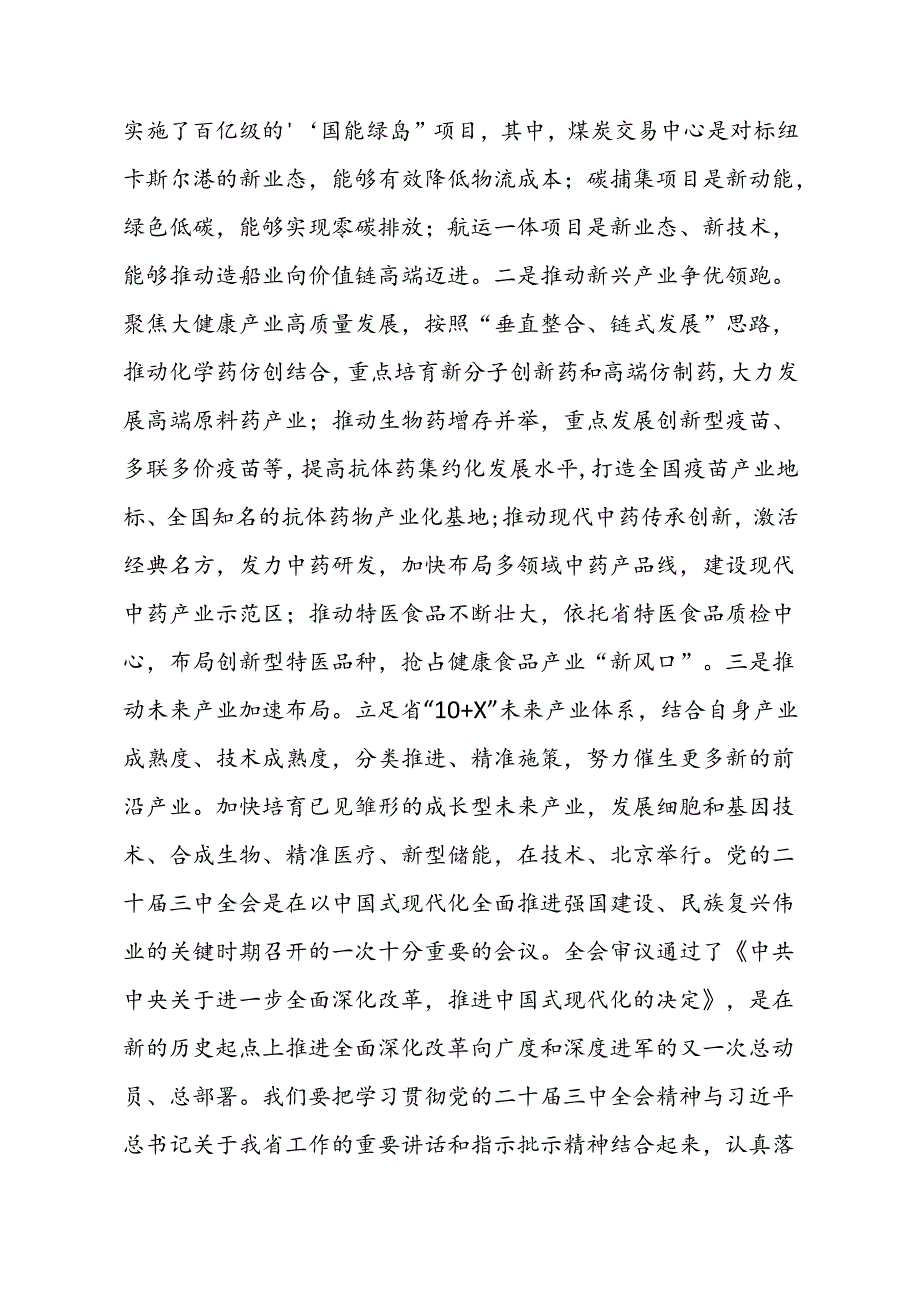 实施了百亿级的'‘国能绿岛”项目，其中，煤炭交易中心是对标纽
卡斯尔港的新业态，能够有效降低物流成本；碳捕集项目是新动能，
绿色低碳，能够实现零碳排放；航运一体项目是新业态、新技术，
能够推动造船业向价值链高端迈进。二是推动新兴产业争优领跑。
聚焦大健康产业高质量发展，按照“垂直整合、链式发展”思路，
推动化学药仿创结合，重点培育新分子创新药和高端仿制药，大力发
展高端原料药产业；推动生物药增存并举，重点发展创新型疫苗、
多联多价疫苗等，提高抗体药集约化发展水平，打造全国疫苗产业地
标、全国知名的抗体药物产业化基地；推动现代中药传承创新，激活
经典名方，发力中药研发，加快布局多领域中药产品线，建设现代
中药产业示范区；推动特医食品不断壮大，依托省特医食品质检中
心，布局创新型特医品种，抢占健康食品产业“新风口”。三是推
动未来产业加速布局。立足省“10+X”未来产业体系，结合自身产业
成熟度、技术成熟度，分类推进、精准施策，努力催生更多新的前
沿产业。加快培育已见雏形的成长型未来产业，发展细胞和基因技
术、合成生物、精准医疗、新型储能，在技术、北京举行。党的二
十届三中全会是在以中国式现代化全面推进强国建设、民族复兴伟
业的关键时期召开的一次十分重要的会议。全会审议通过了《中共
中央关于进一步全面深化改革，推进中国式现代化的决定》，是在
新的历史起点上推进全面深化改革向广度和深度进军的又一次总动
员、总部署。我们要把学习贯彻党的二十届三中全会精神与习近平
总书记关于我省工作的重要讲话和指示批示精神结合起来，认真落